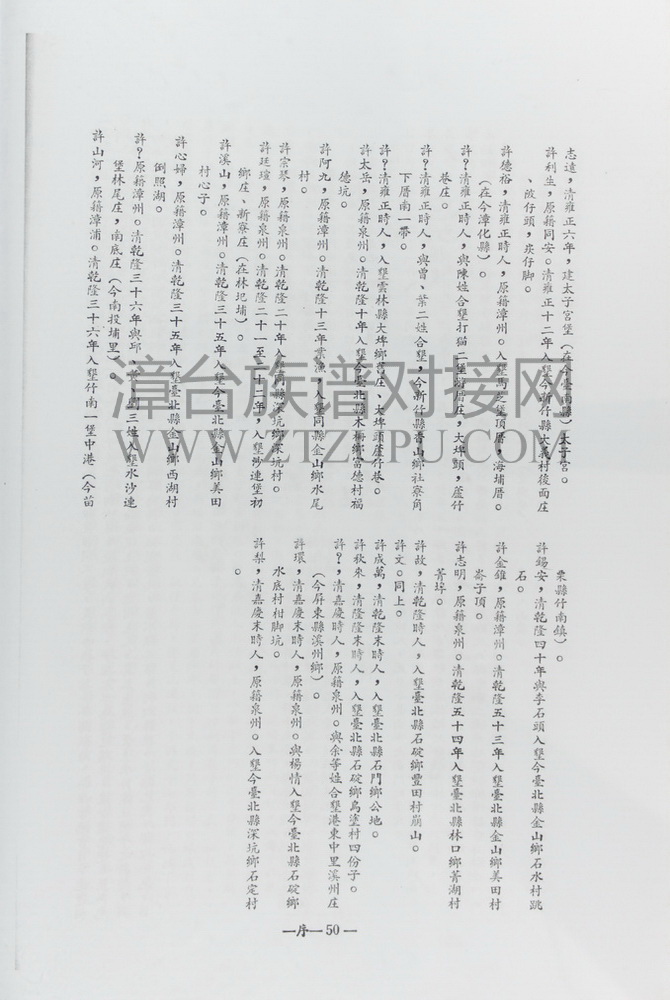 志遠，清雍正六年，建太子宮堡（在今臺南縣）太子宮。
許利生，原籍同安。清雍正十二年入墾今新竹縣大義村後面庄
、波仔頭，崁仔脚。
許德裕，清雍正時人，原籍漳州。入墾馬芝堡頂厝，海埔厝。
（在今漳化縣）。
許？清雍正時人，與陳姓合墾打猫二堡海豐庄，大埤頭，蘆竹
巷庄。
許？清雍正時人，與曾、葉二姓合墾，今新竹縣香山鄉社寮角
下厝南一帶。
許？清雍正時人，入墾雲林縣大埤鄉舊庄、大埤頭蘆竹巷。
許太岳，原籍泉州。清乾隆十年入墾今臺北縣木柵鄉富德村福
德坑。
許阿九，原籍漳州。清乾隆十三年業漁，入墾同縣金山鄉水尾
村。
許宗琴，原籍泉州。清乾隆二十年入墾同縣深坑鄉深坑村。
許廷瑄，原籍泉州。清乾隆二十一至二十二年，入墾沙連堡初
鄉庄、新寮庄（在林圯埔）。
許溪山，原籍漳州。清乾隆三十五年入墾今臺北縣金山鄉美田
村心子。
許心婦，原籍漳州。清乾隆三十五年入墾臺北縣金山鄉西湖村
倒照湖。
許？原籍漳州。清乾隆三十六年與邱、黃、劉三姓入墾水沙連
堡林尾庄，南底庄（今南投埔里）。
許山河，原籍漳浦。清乾隆三十六年入墾竹南一堡中港（今苗
栗縣竹南鎮）。
許錫安，清乾隆四十年與李石頭入墾今臺北縣金山鄉石水村跳
石。
許金錐，原籍漳州。清乾隆五十三年入墾臺北縣金山鄉美田村
崙子頂。
許志明，原籍泉州。清乾隆五十四年入墾臺北縣林口鄉菁湖村
菁埔。
許故，清乾隆時人，入墾臺北縣石碇鄉豐田村崩山。
許文。同上。
許成萬，清乾隆末時人，入墾臺北縣石門鄉公地。
許秋來，清隆隆末時人，入墾臺北縣石碇鄉烏塗村四份子。
許？，清嘉慶時人，原籍泉州。與余等姓合墾港東中里溪州庄
（今屏東縣溪州鄉）。
許環，清嘉慶末時人，原籍泉州。與楊情入墾今臺北縣石碇鄉
水底村柑脚坑。
許梨，清嘉慶末時人，原籍泉州。入墾今臺北縣深坑鄉石定村
。
—序— 50 —
漳台族谱对接网
WWW.ZTZUPU.COM